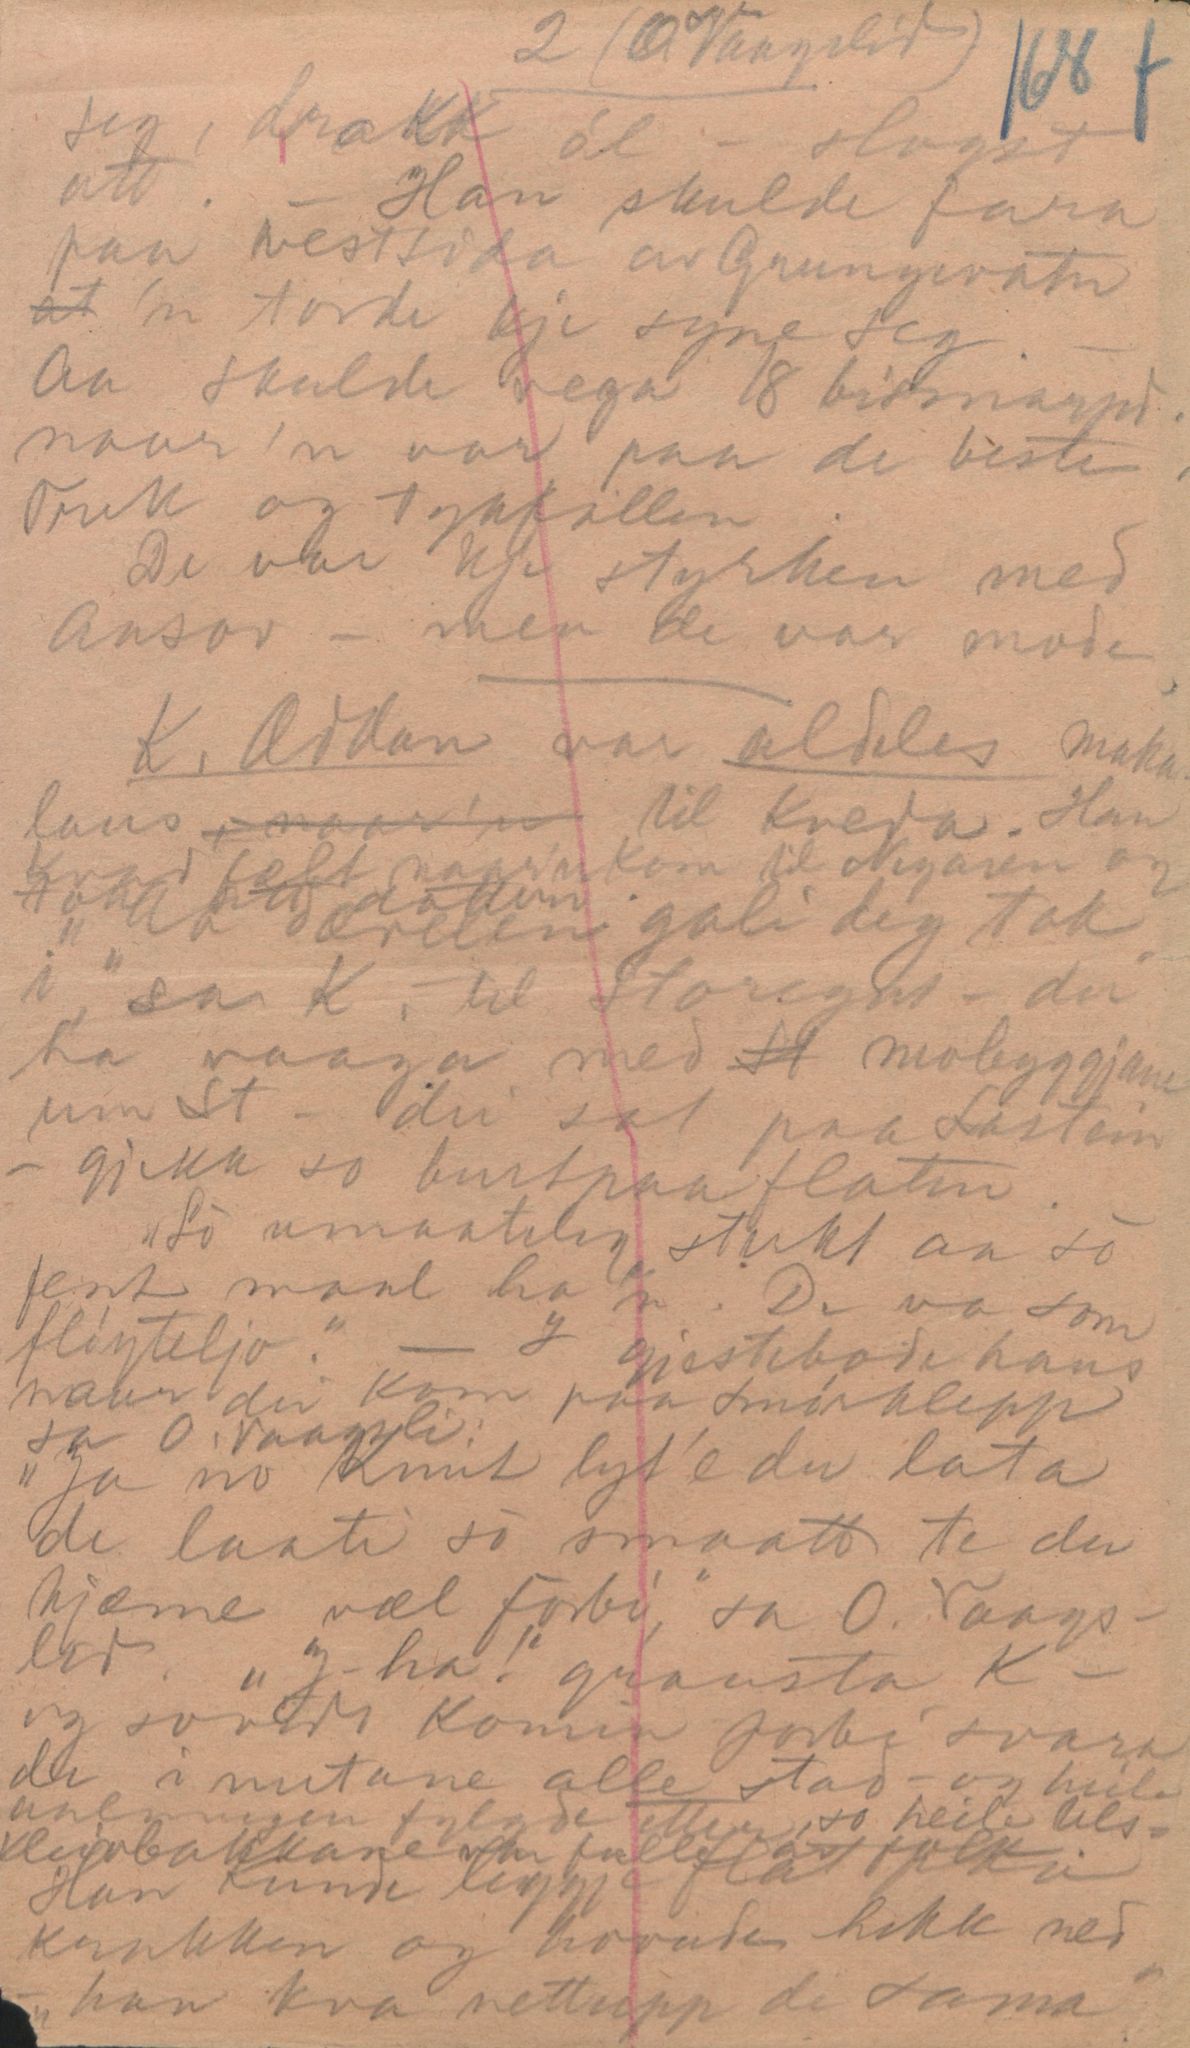 2 (O Vaagslid)
168 f
seg, drakk öl - slogst
att. - Han skulde fara
paa vestsida av Grungevatn
at 'n torde kje syne seg. -
Aa skulde vega 18 bismarpd.
naar 'n var paa de beste,
Trek og tykkfallen.
De var kje styrken med
Aasov - men de var mode,
K. Øddan var aldeles maka-
laus, naar'n til kveda. Han
kvad tæft naar'n kom til Nigaren og
tok att dotten.
"Aa dævelen gali deg tak
i," sa K, til Storegut - dei
ha vaaga med St mobyggjane
um St - dei sat paa Lastein
- gjekk so burt paa flaten.
"Sö umaateleg sterkt aa sö
fent maal ha 'n. De va som
flöyteljo." - I gjestebode hans
naar dei kom paa Smörklepp
sa O. Vaagsli:
"Ja no Knut lyt'e du lata
de laate sö smaatt te du
kjeme væl forbi," sa O. Vaags-
lid. "J-ha!" graausta K -
og so vidt komin forbi svara
de i nutane alle stad - og heile
aalmugen fylgde etter, so heile
kleivbakkane var fulle av folk
Han kunde leggje flat på
krakken og hovude hekk ned
- "han kva nettupp de sama"